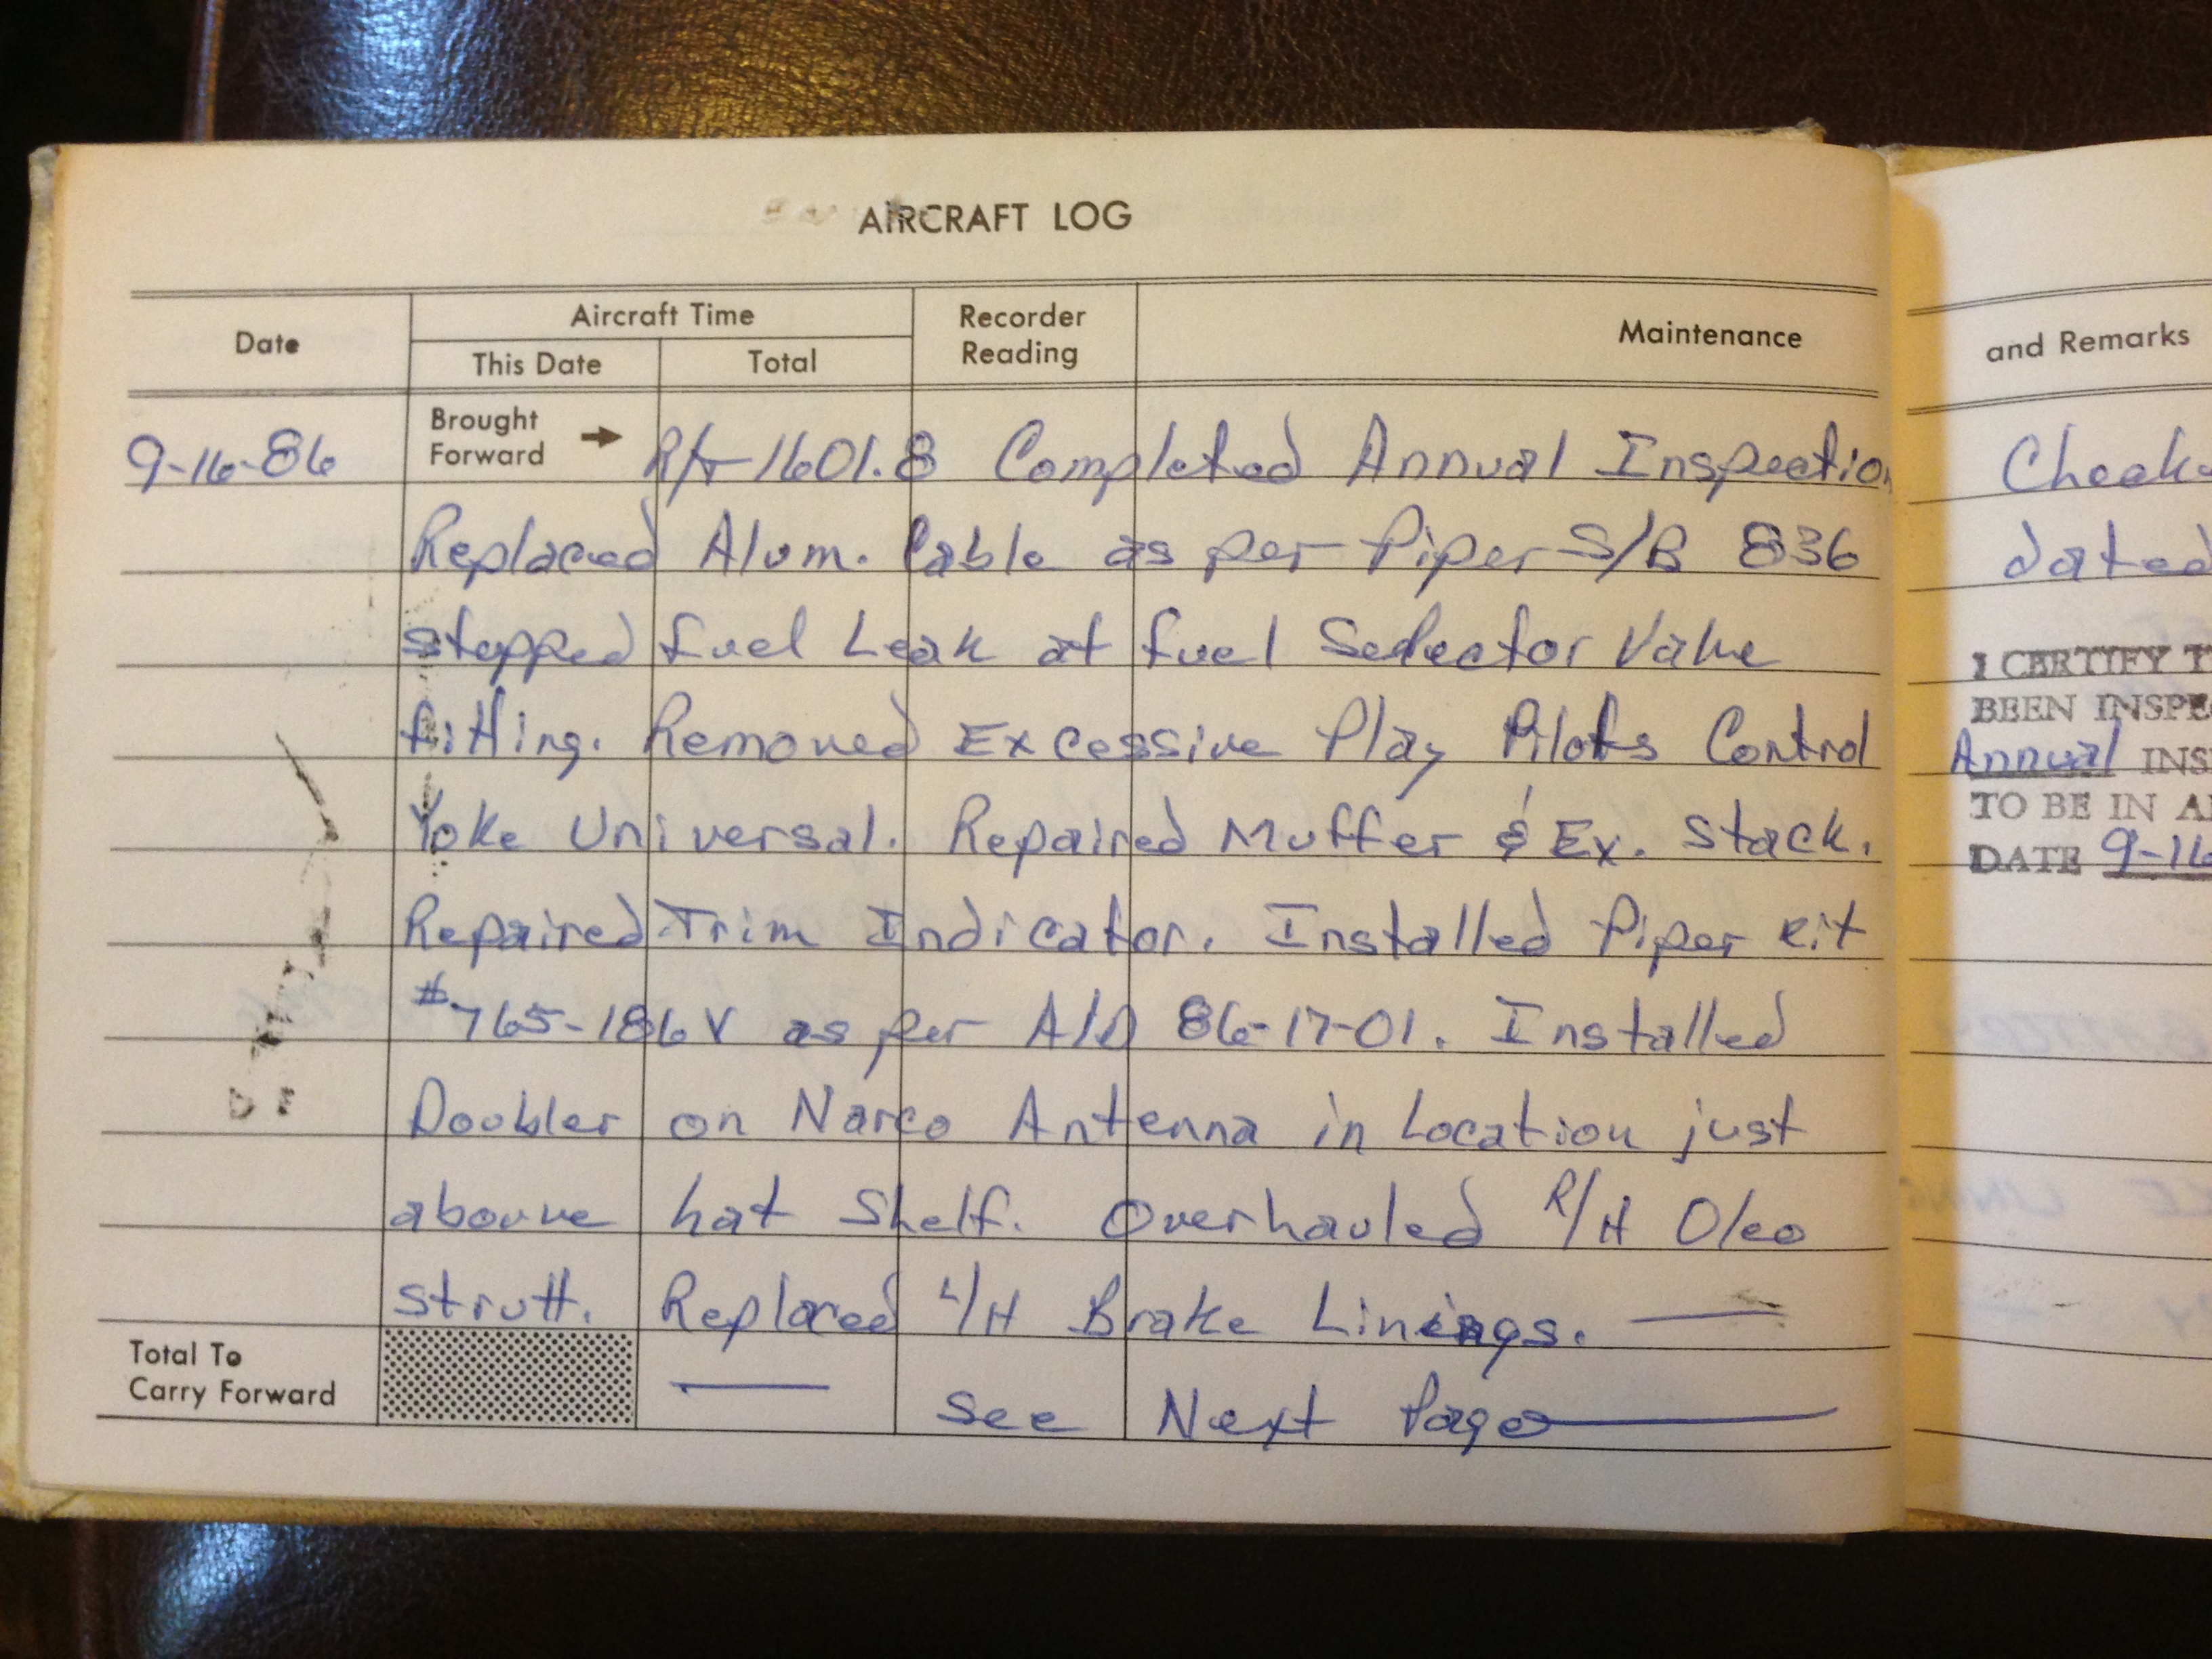 AIRCRAFT LOG
Date
Aircraft Time
This Date
Total
Recorder
Reading
Maintenance
9-16-86
Brought
Forward
R/T-1601.8 Completed Annual Inspection
Replaced Alum. Cable as per Piper S/B 836
stopped fuel Leak at fuel Selector Valve
fitting. Removed Excessive Play Pilots Control
Yoke Universal. Repaired Muffer & Ex. Stack.
Repaired Trim Indicator. Installed Piper kit
#765-186V as per A/D 86-17-01. Installed
Doubler on Narco Antenna in Location just
abovve hat Shelf. Overhauled R/H Oleo
strutt. Replaced L/H Brake Linings.
Total To
Carry Forward
See Next Page
and Remarks
dated
I CERTIFY T
BEEN INSPE
Annual INS
TO BE IN AI
DATE 9-16